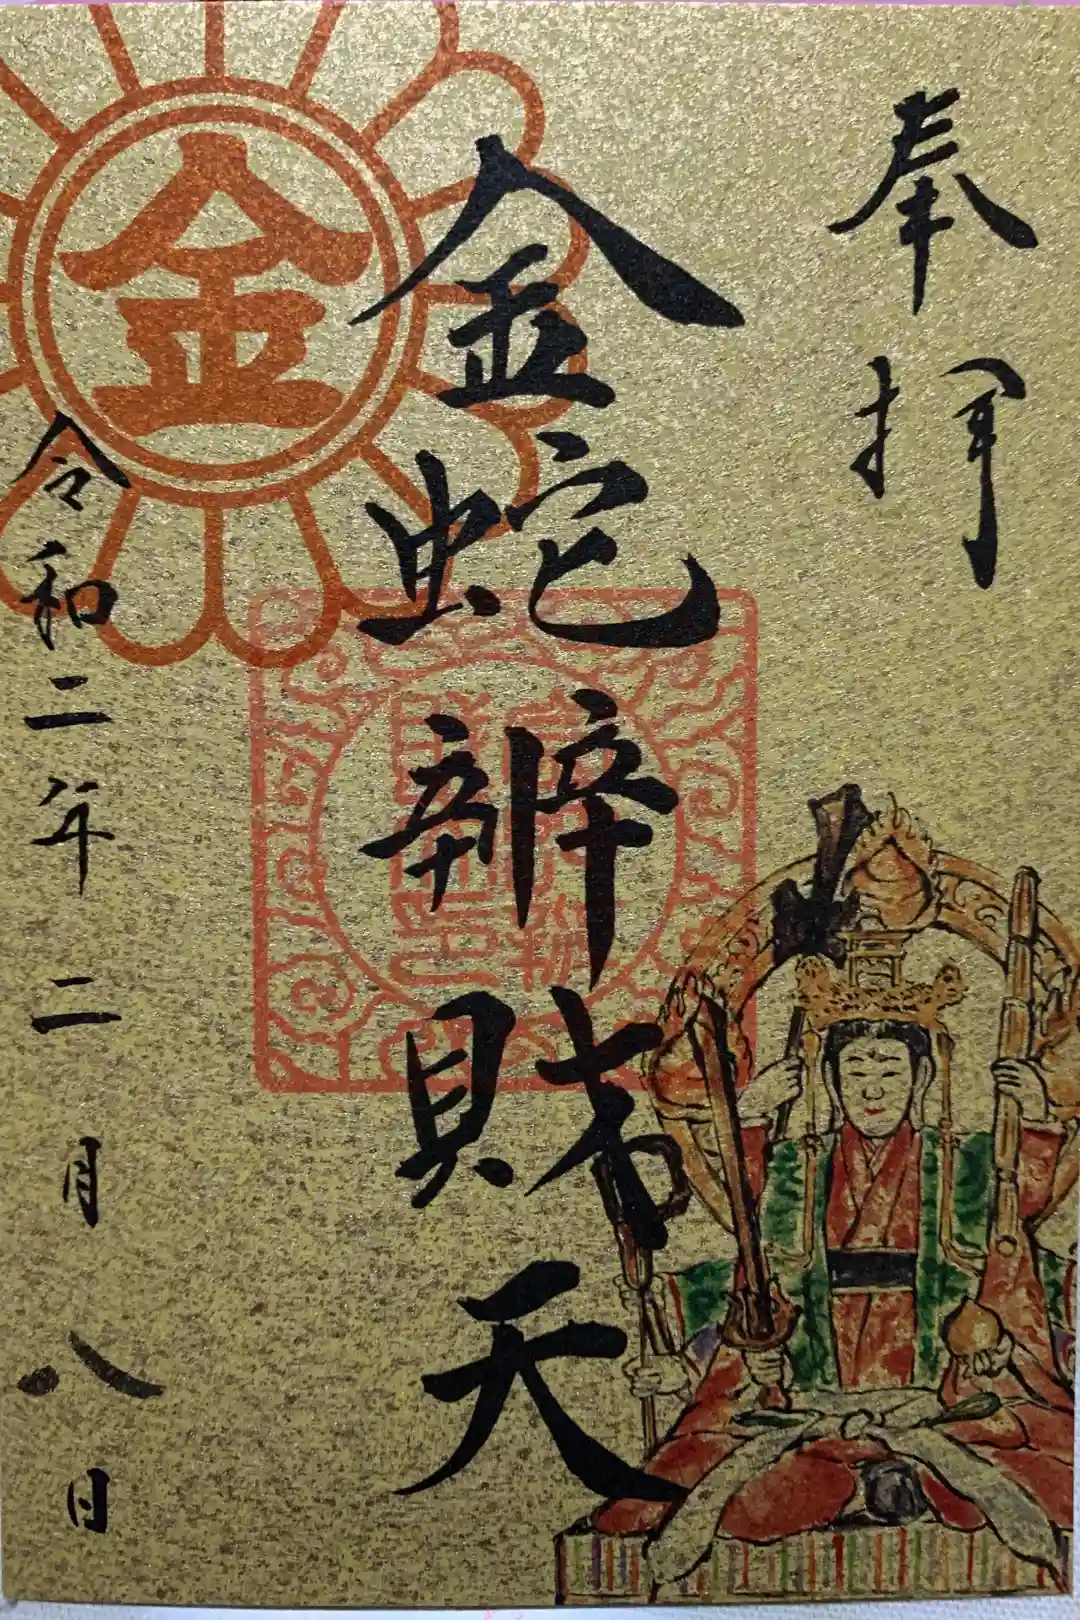 奉拝
金蛇辨財天
金
令和二年二月八日